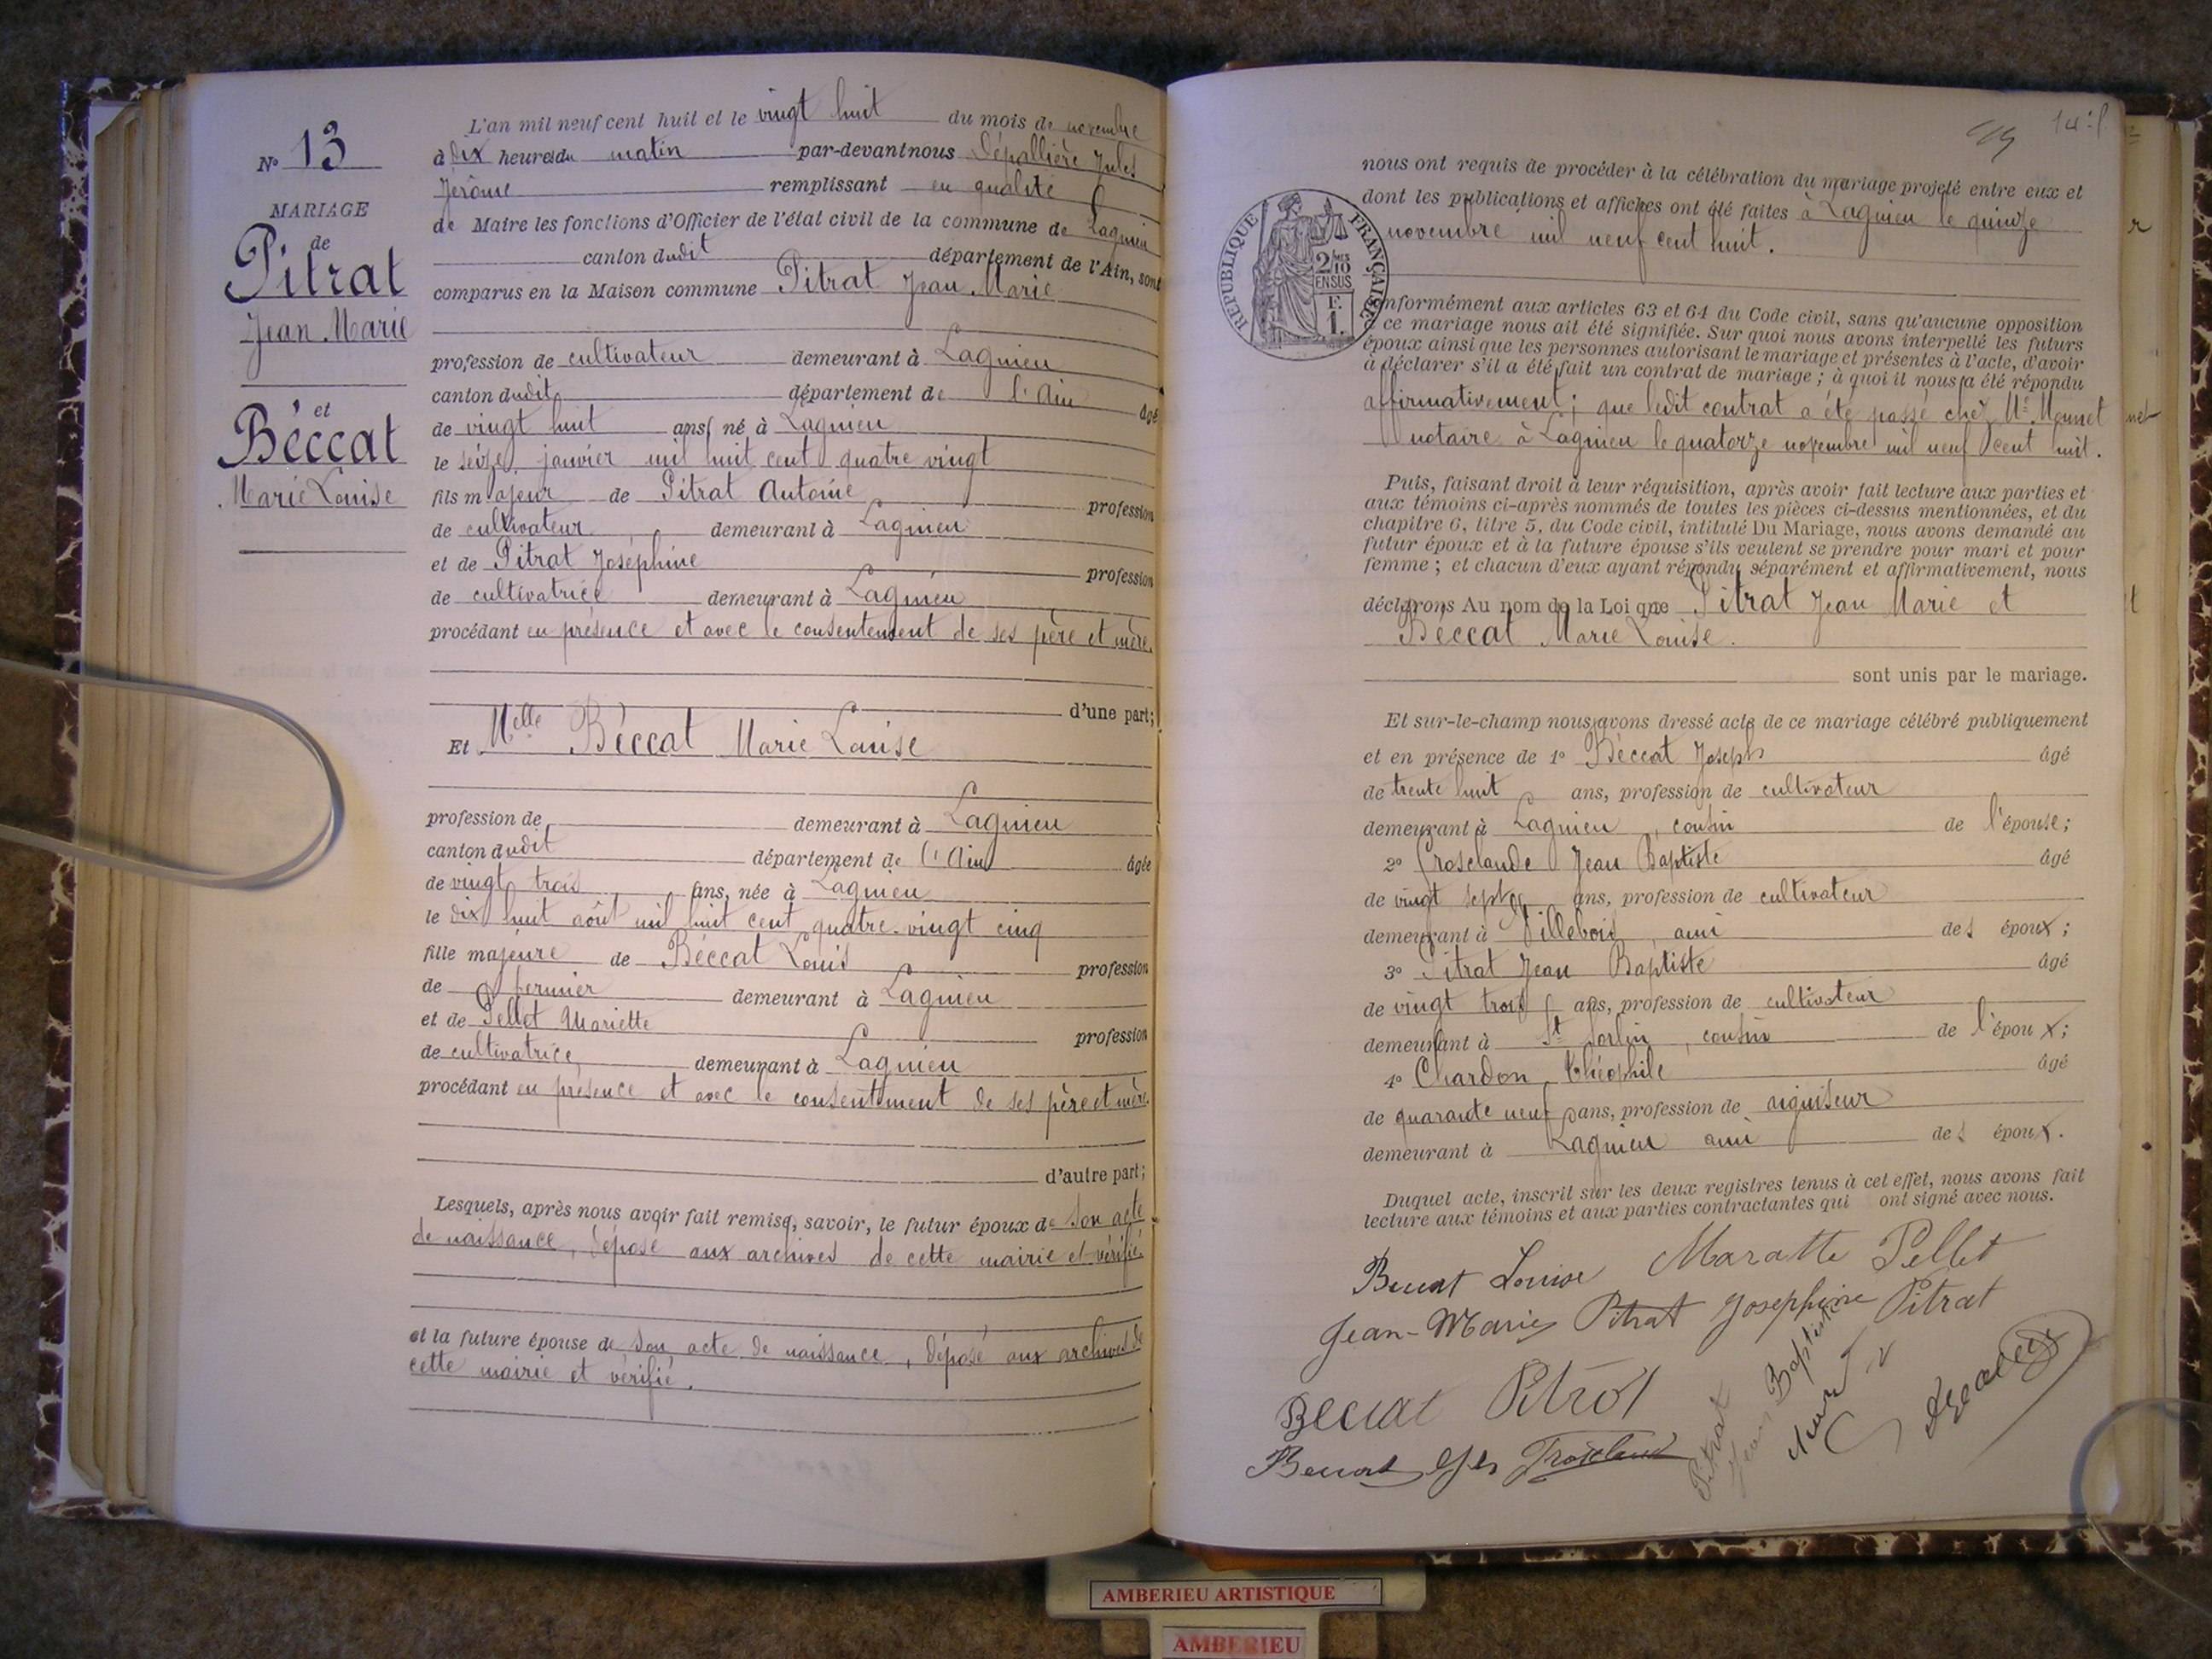 N° 13
MARIAGE
de
Pitrat
Jean Marie
et
Béccat
Marie Louise
L'an mil neuf cent huit et le vingt huit du mois de novembre
à dix heures du matin par-devant nous Dépallière Jules
Jérôme remplissant en qualité
de Maire les fonctions d'Officier de l'état civil de la commune de Lagnieu
canton dudit département de l'Ain, sont
comparus en la Maison commune Pitrat Jean Marie
profession de cultivateur demeurant à Lagnieu
canton dudit département de l'Ain âgé
de vingt huit ans né à Lagnieu
le seize janvier mil huit cent quatre vingt
fils majeur de Pitrat Antoine profession
de cultivateur demeurant à Lagnieu
et de Pitrat Joséphine profession
de cultivatrice demeurant à Lagnieu
procédant en présence et avec le consentement de ses père et mère.
d'une part;
Et Melle Béccat Marie Louise
profession de demeurant à Lagnieu
canton dudit département de l'Ain âgée
de vingt trois ans, née à Lagnieu
le dix huit août mil huit cent quatre-vingt cinq
fille majeure de Béccat Louis profession
de fermier demeurant à Lagnieu
et de Pellet Mariette profession
de cultivatrice demeurant à Lagnieu
procédant en présence et avec le consentement de ses père et mère.
d'autre part;
Lesquels, après nous avoir fait remise, savoir, le futur époux de son acte
de naissance, déposé aux archives de cette mairie et vérifié.
et la future épouse de son acte de naissance, déposé aux archives de
cette mairie et vérifié.
nous ont requis de procéder à la célébration du mariage projeté entre eux et
dont les publications et affiches ont été faites à Lagnieu le quinze
novembre mil neuf cent huit.
REPUBLIQUE FRANÇAISE
2/10
EN SUS
F.
1.
conformément aux articles 63 et 64 du Code civil, sans qu'aucune opposition
ce mariage nous ait été signifiée. Sur quoi nous avons interpellé les futurs
époux ainsi que les personnes autorisant le mariage et présentes à l'acte, d'avoir
à déclarer s'il a été fait un contrat de mariage ; à quoi il nous a été répondu
affirmativement ; que ledit contrat a été passé chez Me Monnet
notaire à Lagnieu le quatorze novembre mil neuf cent huit.
Puis, faisant droit à leur réquisition, après avoir fait lecture aux parties et
aux témoins ci-après nommés de toutes les pièces ci-dessus mentionnées, et du
chapitre 6, titre 5, du Code civil, intitulé Du Mariage, nous avons demandé au
futur époux et à la future épouse s'ils veulent se prendre pour mari et pour
femme ; et chacun d'eux ayant répondu séparément et affirmativement, nous
déclarons Au nom de la Loi que Pitrat Jean Marie et
Béccat Marie Louise.
sont unis par le mariage.
Et sur-le-champ nous avons dressé acte de ce mariage célébré publiquement
et en présence de 1° Béccat Joseph âgé
de trente huit ans, profession de cultivateur
demeurant à Lagnieu, cousin de l'épouse;
2° Croselande Jean Baptiste âgé
de vingt sept ans, profession de cultivateur
demeurant à Villebois, ami des époux;
3° Pitrat Jean Baptiste âgé
de vingt trois ans, profession de cultivateur
demeurant à St Sorlin, cousin de l'époux;
4° Chardon Théophile âgé
de quarante neuf ans, profession de aiguiseur
demeurant à Lagnieu ami des époux.
Duquel acte, inscrit sur les deux registres tenus à cet effet, nous avons fait
lecture aux témoins et aux parties contractantes qui ont signé avec nous.
Beccat Louise Mariatte Pellet
Jean-Marie Pitrat Josephine Pitrat
Beccat Pitrat
Pitrat
Jean Baptiste
AMBERIEU ARTISTIQUE
AMBERIEU